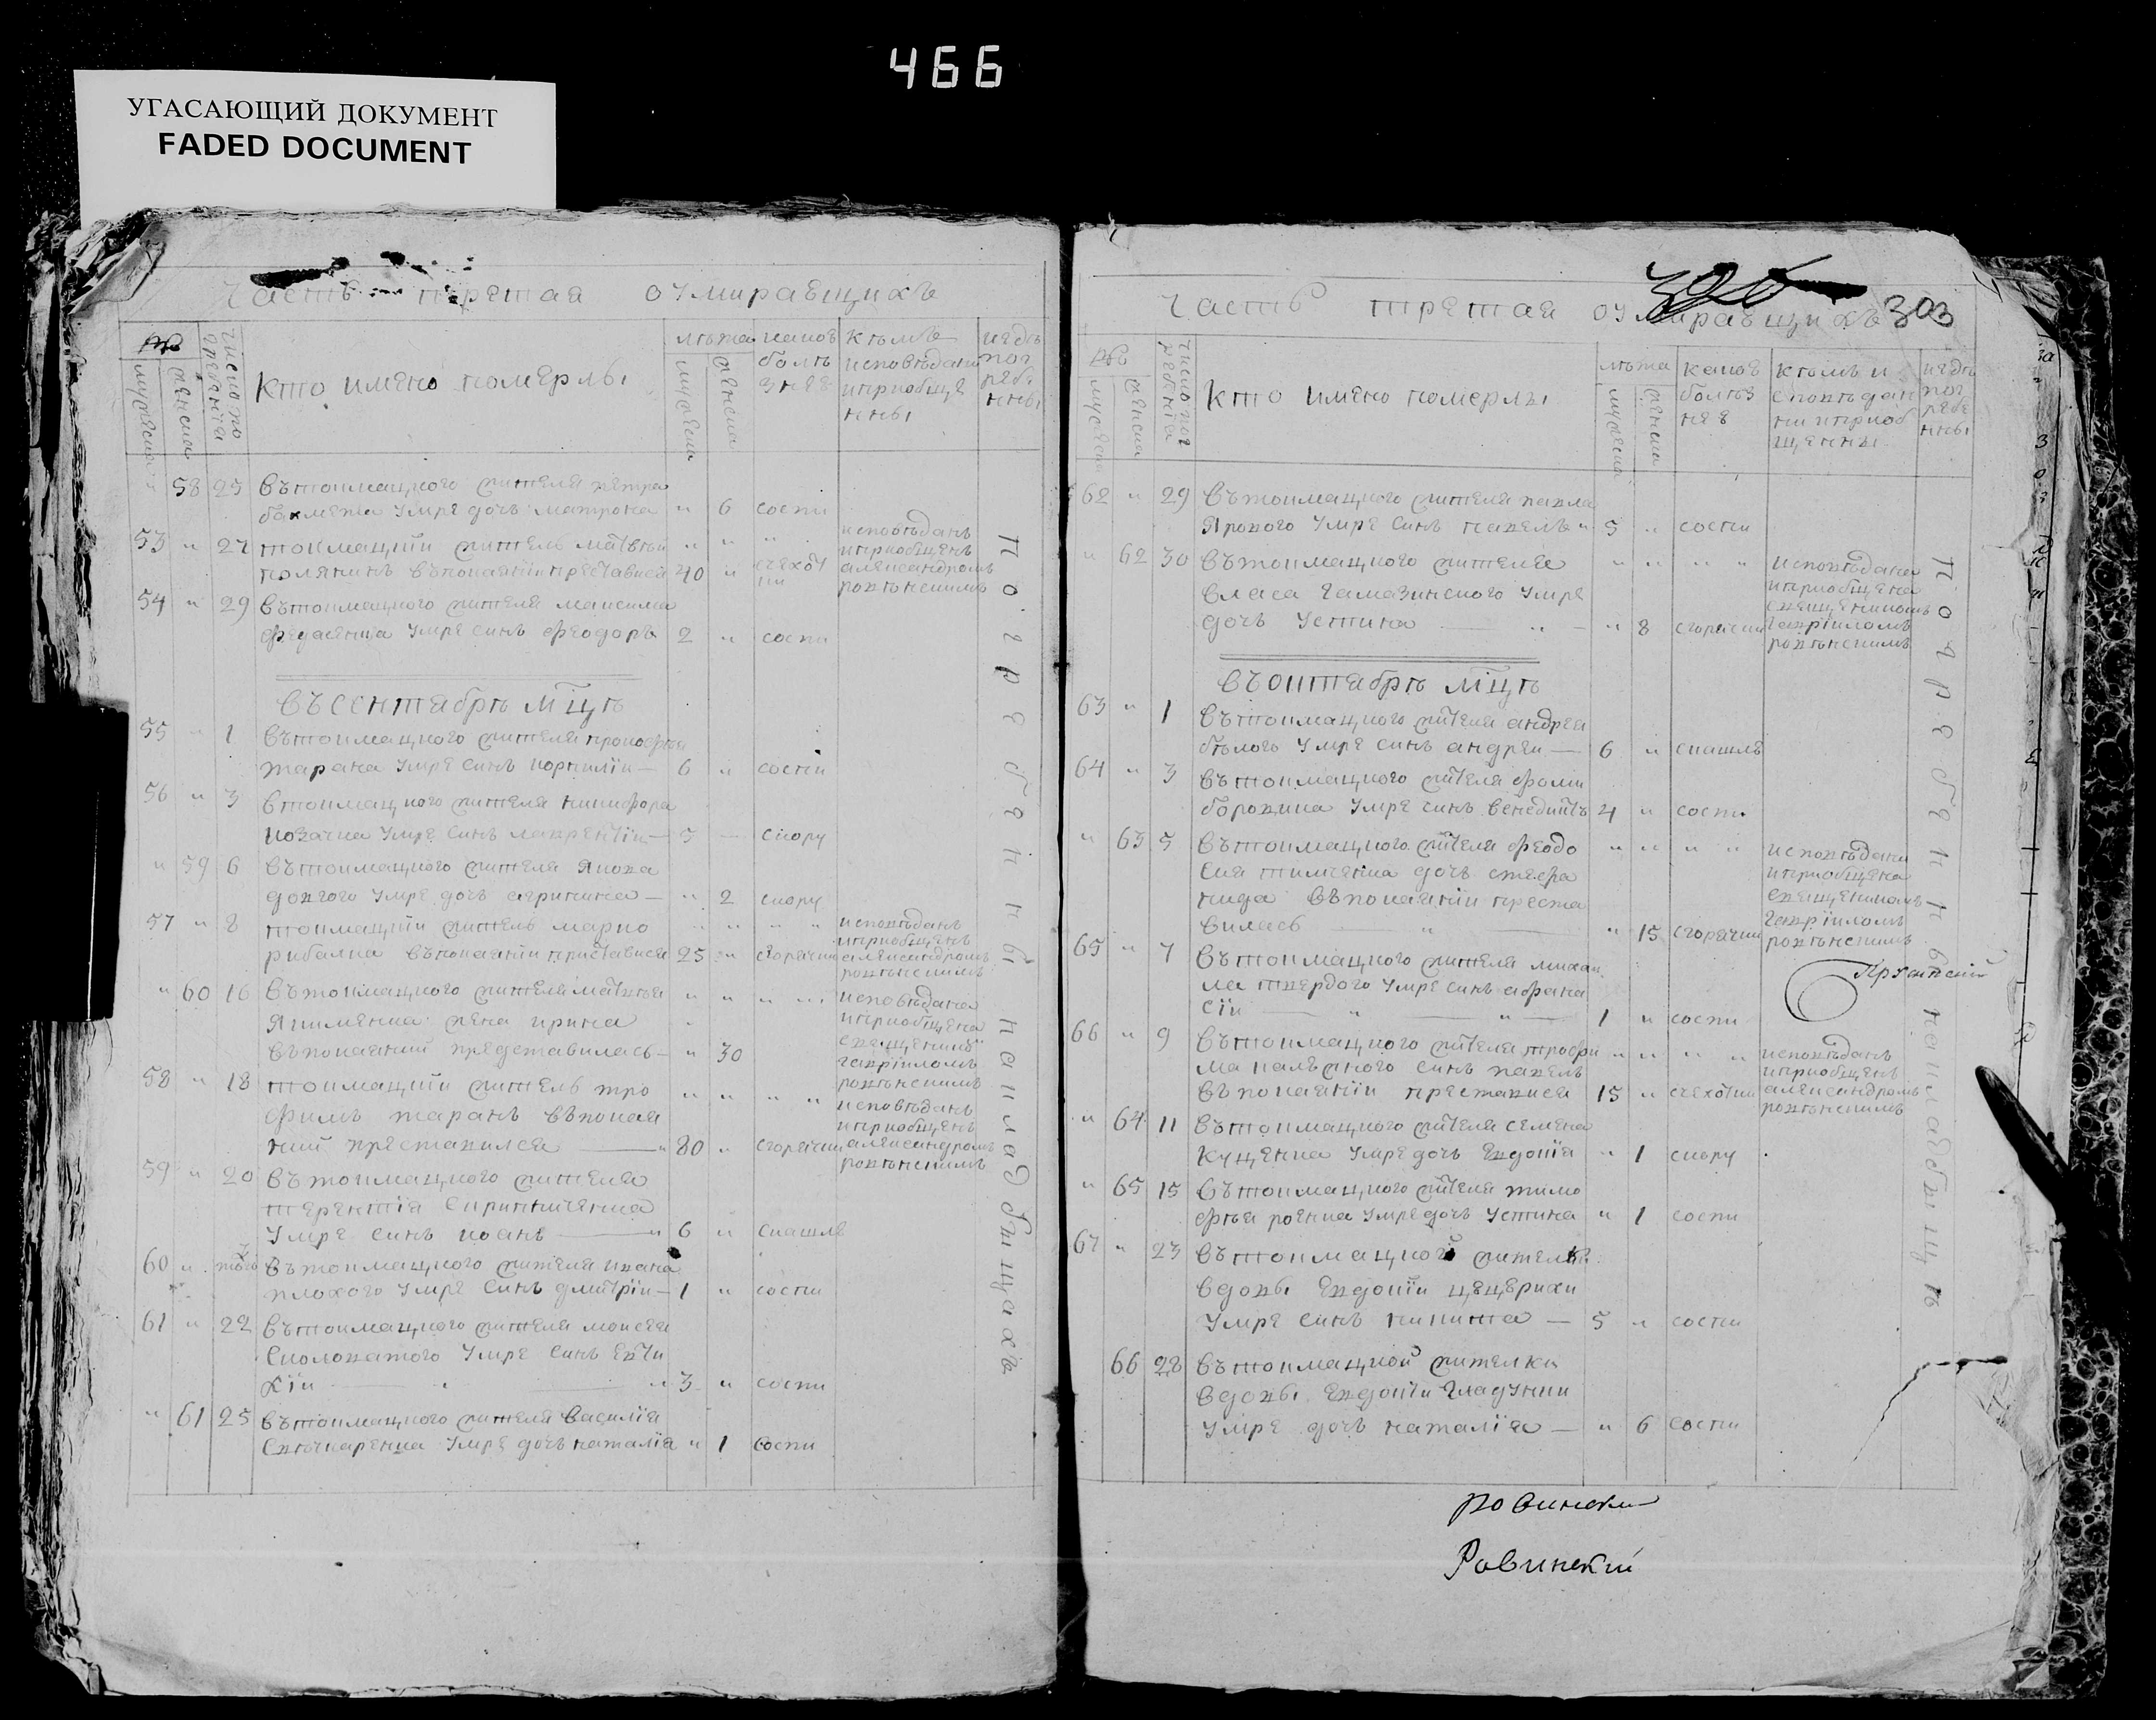 466
УГАСАЮЩИЙ ДОКУМЕНТ
FADED DOCUMENT
Часть третая оумиравщихъ
кто имено померлы
лѣта
мужеска
женска
какою болѣзнею
кѣмъ исповѣдани и приобщенны
где погребенны
58 25 въ токмацкого жителя петра
умре дочь матрона " 6 соспи
53 " 27 токмацкїй житель матвѣй
полянинъ въ покаянїи преставися 40 " счехотки
исповѣданъ и приобщенъ александромъ ровѣнскимъ
54 " 29 въ токмацкого жителя максима
федченка умре синъ феодоръ 2 " соспи
въ сентябрѣ мцѣ
55 " 1 въ токмацкого жителя прокофѣя
тарана умре синъ корнилїи 6 " соспи
56 " 3 в токмацкого жителя никифора
козачка умре синъ лаврентїи 5 — скору
" 59 6 въ токмацкого жителя якова
довгого умре дочь агрипина " 2 скору
57 " 8 токмацкїй житель марко
рибалка въ покаянїи преставися 25 " сгорячки
исповѣданъ и приобщенъ александромъ ровѣнскимъ
" 60 16 въ токмацкого жителя матвѣя
якименка жена ирина
въ покаянии представилась " 30
исповѣдана и приобщена священикъ гаврїиломъ ровѣнскимъ
58 " 18 токмацкїй житель тро
фимъ таранъ въ покая
нии преставился 80 " сгорячки
исповѣданъ и приобщенъ александромъ ровѣнскимъ
59 " 20 въ токмацкого жителя
терентїя скрипниченка
умре синъ иоанъ 6 " скашлю
60 " того въ токмацкого жителя ивана
плохого умре синъ дмитрїи 1 " соспи
61 " 22 въ токмацкого жителя моисея
сколоватого умре синъ евти
хїи 3 " соспи
" 61 25 въ токмацкого жителя василїя
умре дочь наталїя " 1 соспи
погребенны на кладбыщахъ
Часть третая оумиравщихъ 303
число погребенїя
кто имено померлы
лѣта
мужеска
женска
какою болѣзнею
кѣмъ и споведанни и приобщенны
где погребенны
62 " 29 въ токмацкого жителя павла
ярового умре синъ павелъ 5 " соспи
" 62 30 въ токмацкого жителя
власа гамазинского умре
дочь устина " 8 сгорячки
исповѣдана и приобщена священикомъ гаврїиломъ ровѣнскимъ
въ октябрѣ мцѣ
63 " 1 въ токмацкого жителя андрея
бѣлого умре синъ андрѣи 6 " скашлю
64 " 3 въ токмацкого жителя фоми
боровика умре синъ венедиктъ 4 " соспи
" 63 5 въ токмацкого жителя феодо
сия тимченка дочь стефа
нида въ покаянїи преста
вилась " 15 сгорячки
исповѣдана и приобщена священикомъ гаврїиломъ ровѣнскимъ
65 " 7 въ токмацкого жителя михаи
ла твердого умре синъ афана
сїи 1 " соспи
66 " 9 въ токмацкого жителя трофи
ма синъ павелъ
въ покаянїи преставися 15 " счехотки
исповѣданъ и приобщенъ александромъ ровѣнскимъ
" 64 11 въ токмацкого жителя семена
куценка умре дочь евдокїя " 1 скору
" 65 15 въ токмацкого жителя тимо
фѣя роенка умре дочь устина " 1 соспи
67 " 23 въ токмацкой жителки
вдовы евдокїи цецерихи
умре синъ никита 5 " соспи
66 28 въ токмацкой жителки
вдовы евдокїи гладунки
умре дочь наталїя " 6 соспи
погребенны на кладбыщѣ
ровински
Ровинский